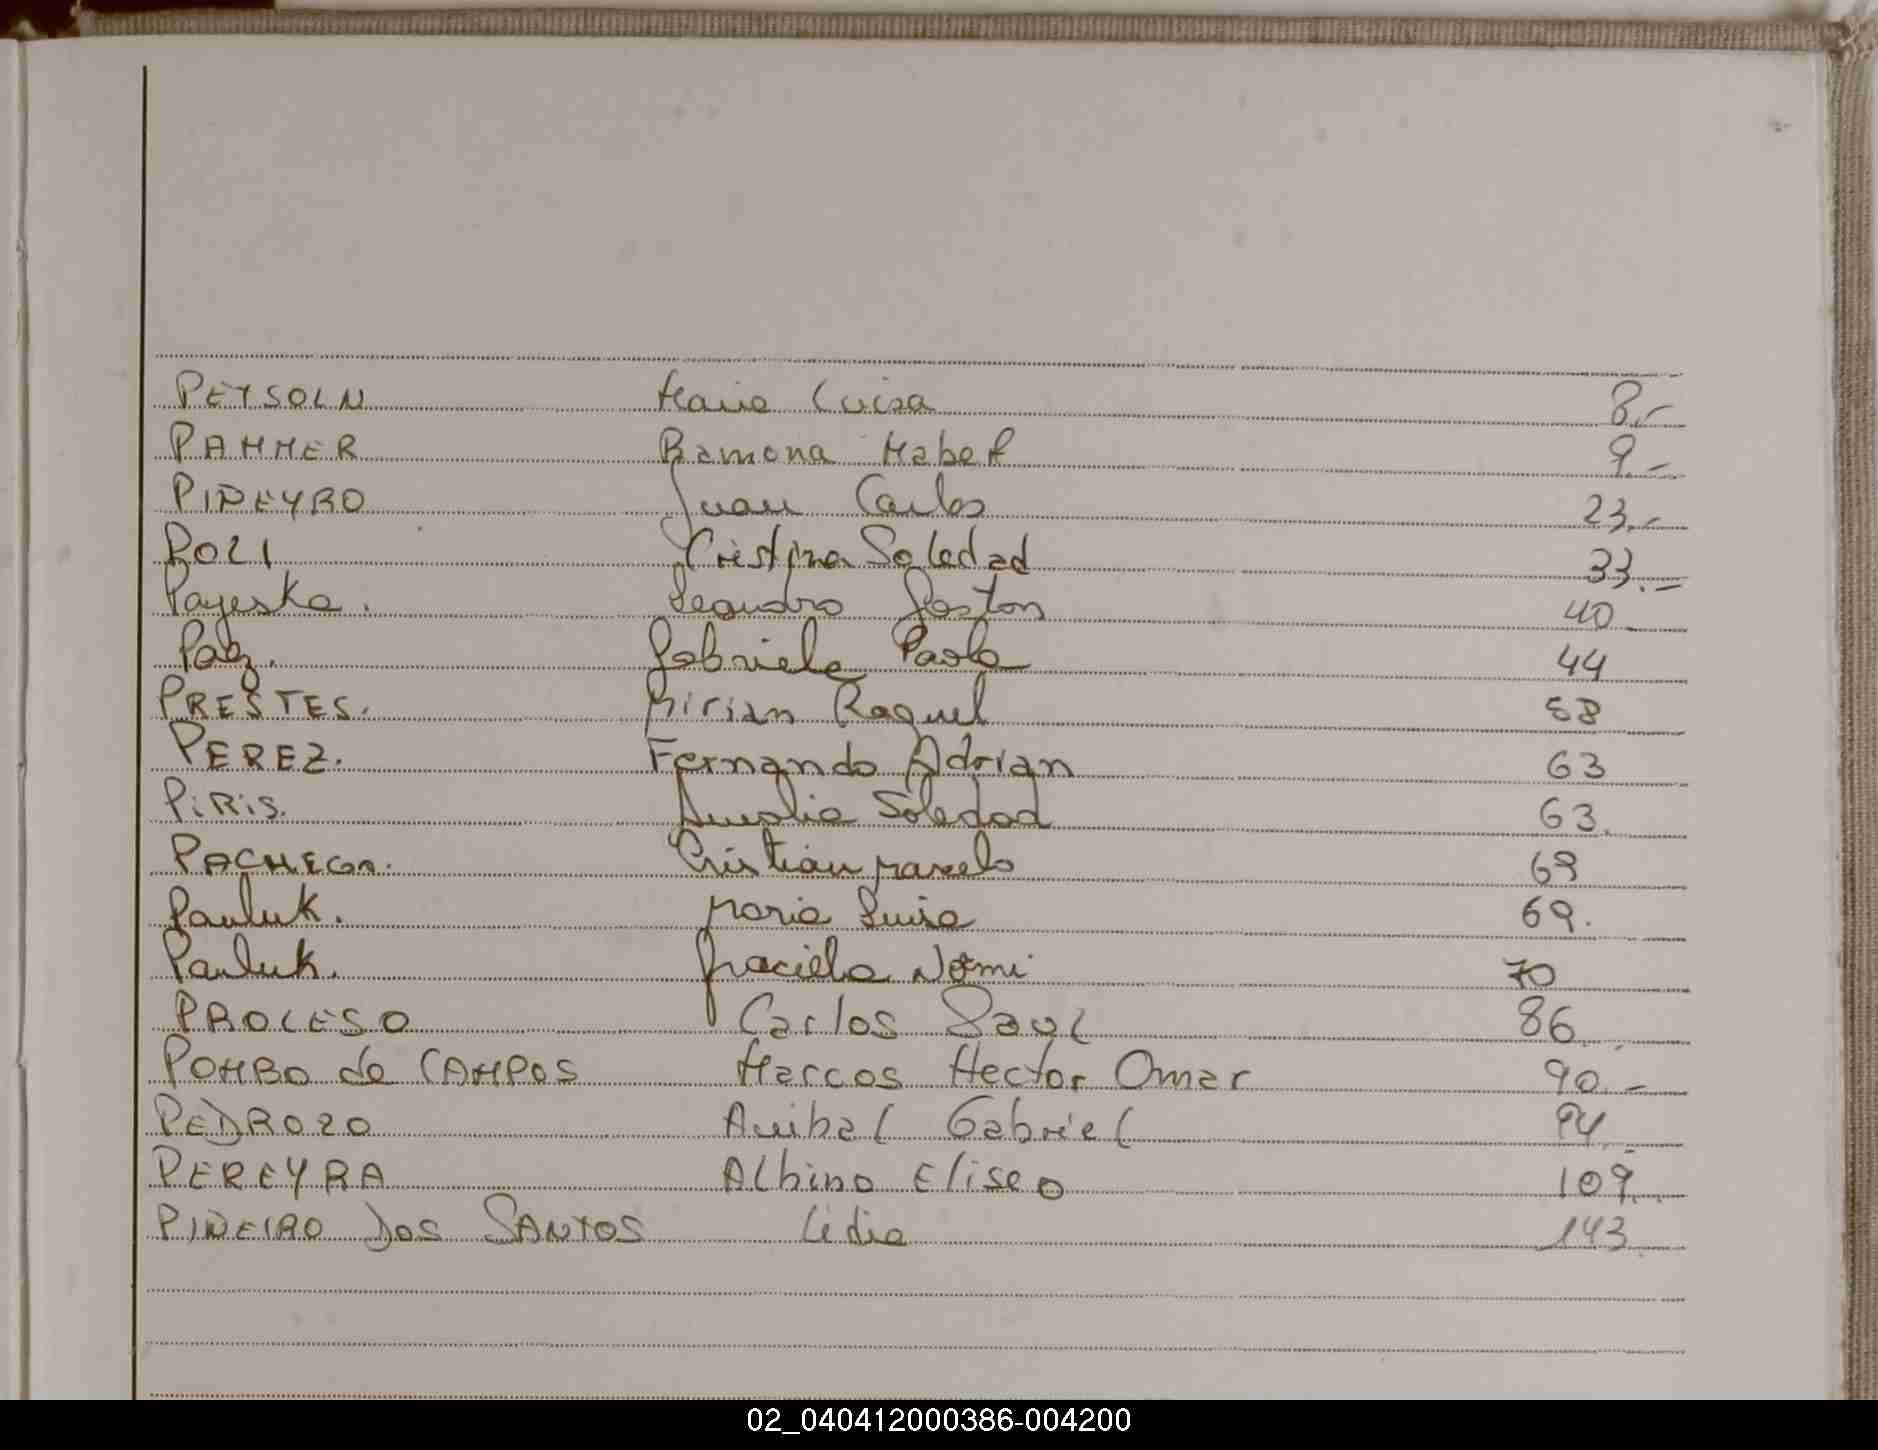 PETSOLN Maria Luisa 8.-
PAMMER Ramona Mabel 9.-
PIÑEYRO Juan Carlos 23.-
POZI Cristina Soledad 33.-
Payeska. Leandro Gaston 40
Paez. Gabriela Paola 44
PRESTES. Mirian Raquel 58
PEREZ. Fernando Adrian 63
PiRiS. Analia Soledad 63.
PACHECO. Cristian Marcelo 68
Pauluk. Maria Luisa 69.
Pauluk. Graciela Noemi 70
PROCESO Carlos Saul 86
POMBO de CAMPOS Marcos Hector Omar 90.-
PEDROZO Anibal Gabriel 94
PEREYRA Albino Eliseo 109.
PINEIRO DOS SANTOS Lidia 143.
02_040412000386-004200